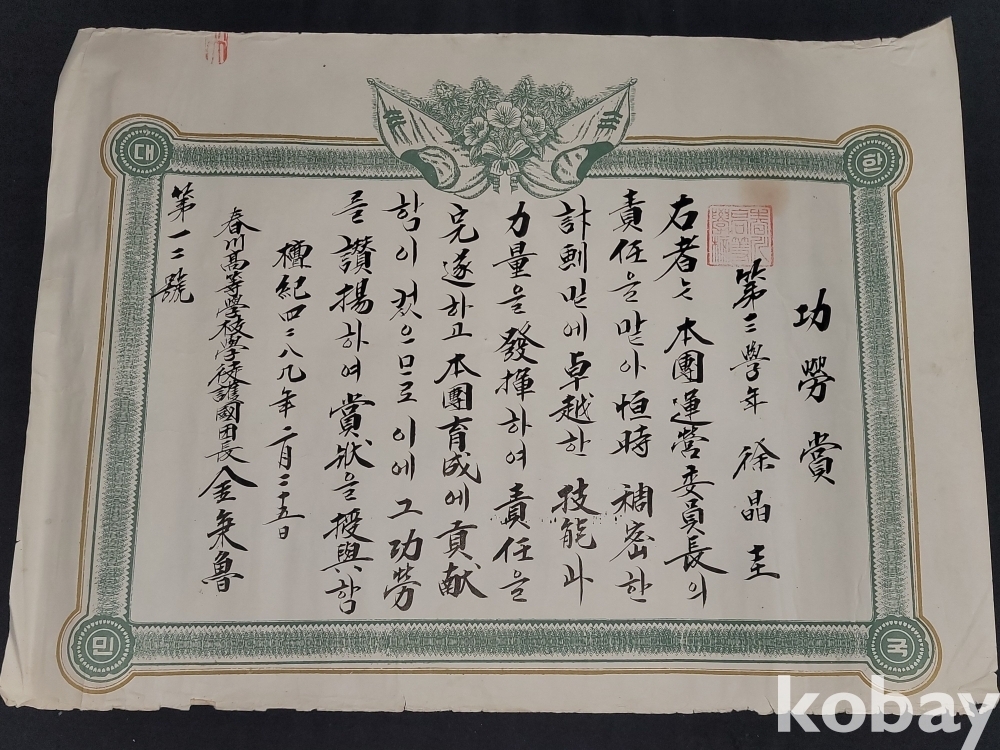 功勞賞
第三學年 徐晶圭
右者는 本團運營委員長의
責任을 맡아 恒時 稠密한
計劃 밑에 卓越한 技能과
力量을 發揮하여 責任을
完遂하고 本團育成에 貢献
함이 컸으므로 이에 그 功勞
를 讃揚하여 賞狀을 授與함
檀紀四二八九年 二月二十五日
春川高等學校學徒護國团長 金秉魯
第一二號
한
대
국
민
kobay